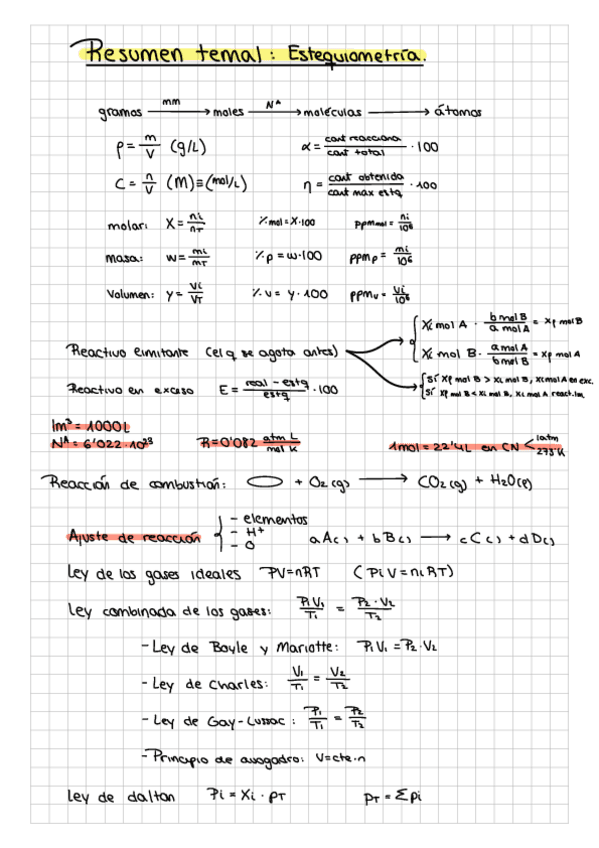 Resumen tema1: Estequiometría.
gramos —mm→ moles —Nᴬ→ moléculas → átomos
ρ = m/V (g/L)    α = cant reacciona/cant total · 100
C = n/V (M) ≡ (mol/L)    η = cant obtenida/cant max estq · 100
molar: X = ni/nT    % mol = X·100    ppm mol = ni/10⁶
masa: w = mi/mT    % p = w·100    ppm p = mi/10⁶
Volumen: y = Vi/VT    % v = y·100    ppm v = Vi/10⁶
Xi mol A · b mol B/a mol A = Xf mol B
Reactivo limitante (el q se agota antes)
Xi mol B · a mol A/b mol B = Xf mol A
Reactivo en exceso E = real - estq/estq · 100
Sí Xf mol B > Xi mol B, Xi mol A en exc.
Sí Xf mol B < Xi mol B, Xi mol A react. lim
1m³ = 1000L
Nᴬ = 6'022·10²³    R = 0'082 atm L/mol K    1mol = 22'4L en CN < 1atm 273K
Reacción de combustión: + O₂(g) → CO₂(g) + H₂O(l)
Ajuste de reacción { - elementos
- H⁺
- O
aA( ) + bB( ) → cC( ) + dD( )
Ley de los gases ideales PV=nRT (PiV=niRT)
Ley combinada de los gases: P₁V₁/T₁ = P₂·V₂/T₂
- Ley de Boyle y Mariotte: P₁V₁ = P₂·V₂
- Ley de Charles: V₁/T₁ = V₂/T₂
- Ley de Gay-Lussac: P₁/T₁ = P₂/T₂
- Principio de avogadro: V=cte·n
Ley de dalton Pi = Xi · PT    PT = Σpi